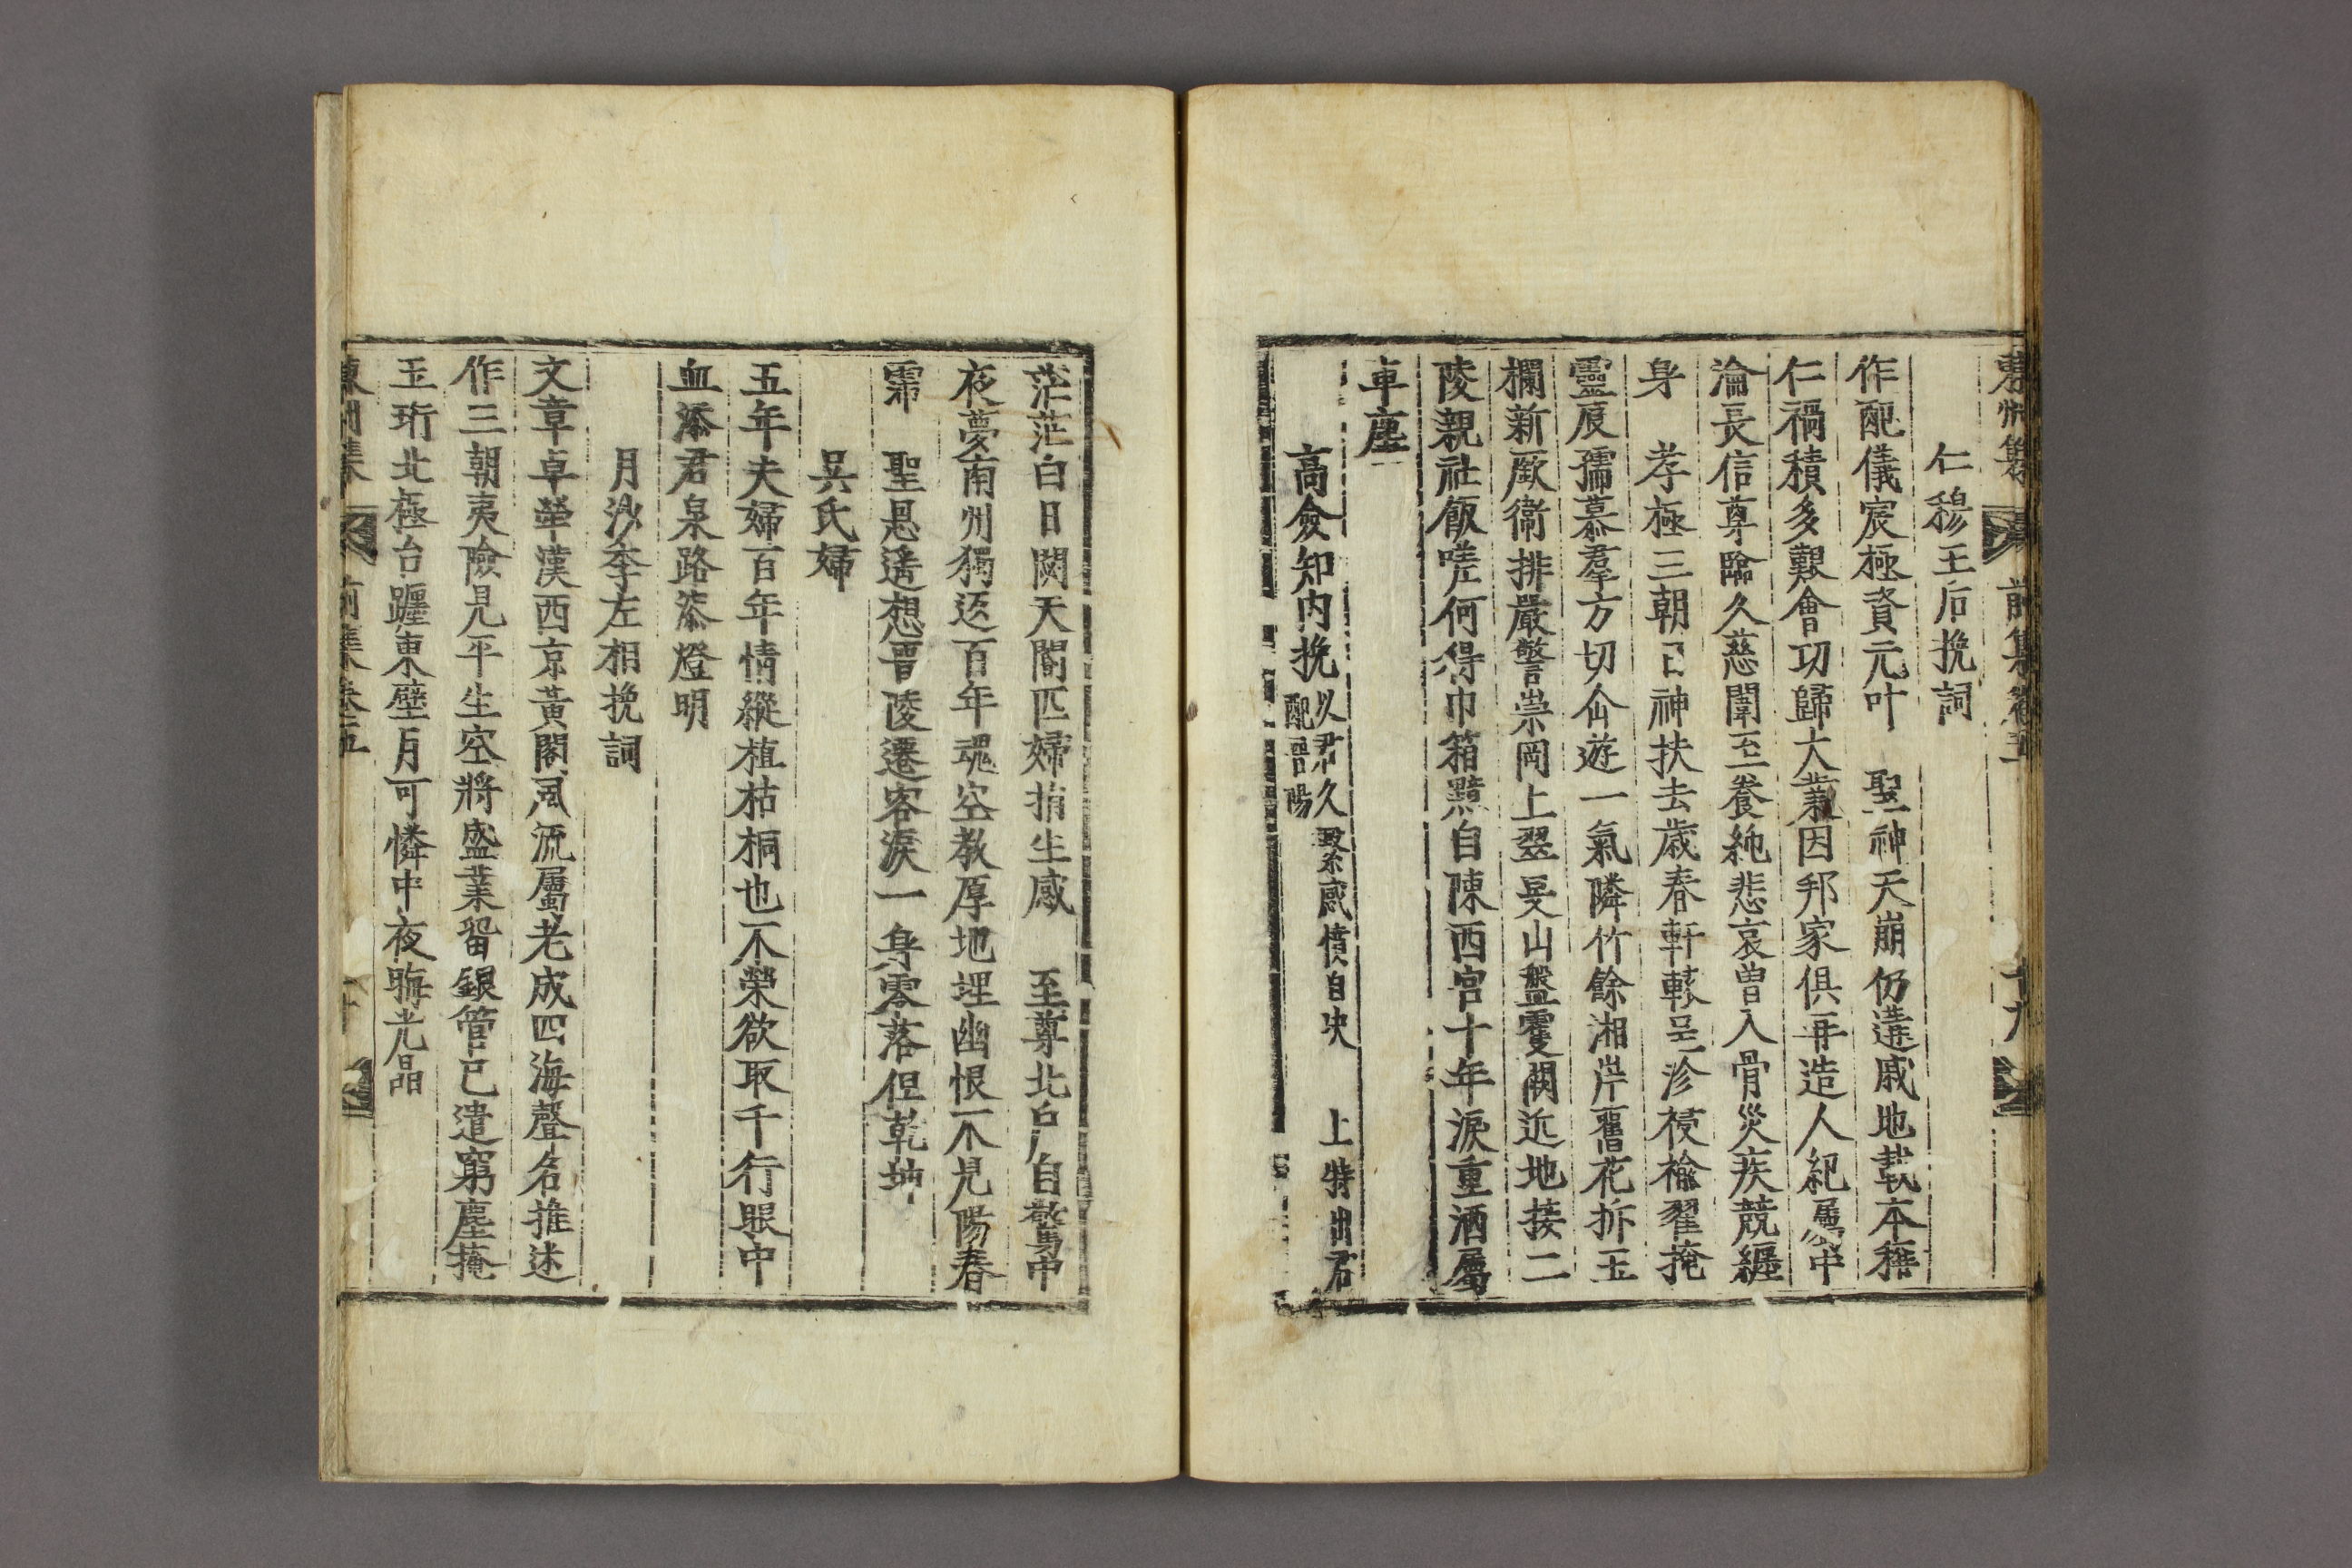 東州集 前集卷五 十九
仁穆王后挽詞
作配儀宸極資元叶 聖神天崩仍遘戚地載本積
仁禍積多艱會功歸大業因邦家俱再造人紀屬中
淪長信尊臨久慈闈至養純悲哀曾入骨災疾競纏
身 孝極三朝日神扶去歲春軒轅呈沴祲褕翟掩
靈扆孺慕羣方切仙遊一氣隣竹餘湘岸舊花拆玉
欄新厥衛排嚴警崇岡上翠旻山盤靈闕近地接二
陵親社飯嗟何得巾箱黯自陳西宮十年淚重洒屬
車塵
高僉知內挽 以君久繫感憤自决 上特出君
配晋陽
茫茫白日閟天閽匹婦捐生感 至尊北戶自驚中
夜夢南州獨返百年魂空教厚地埋幽恨不見陽春
霈 聖恩遙想晋陵遷客淚一身零落但乾坤
吳氏婦
五年夫婦百年情縱植枯桐也不榮欲取千行眼中
血添君泉路漆燈明
月沙李左相挽詞
文章卓犖漢西京黃閣風流屬老成四海聲名推述
作三朝夷險見平生空將盛業留銀管已遣窮塵掩
玉珩北極台躔東壁月可憐中夜晦光晶
東州集 前集卷五